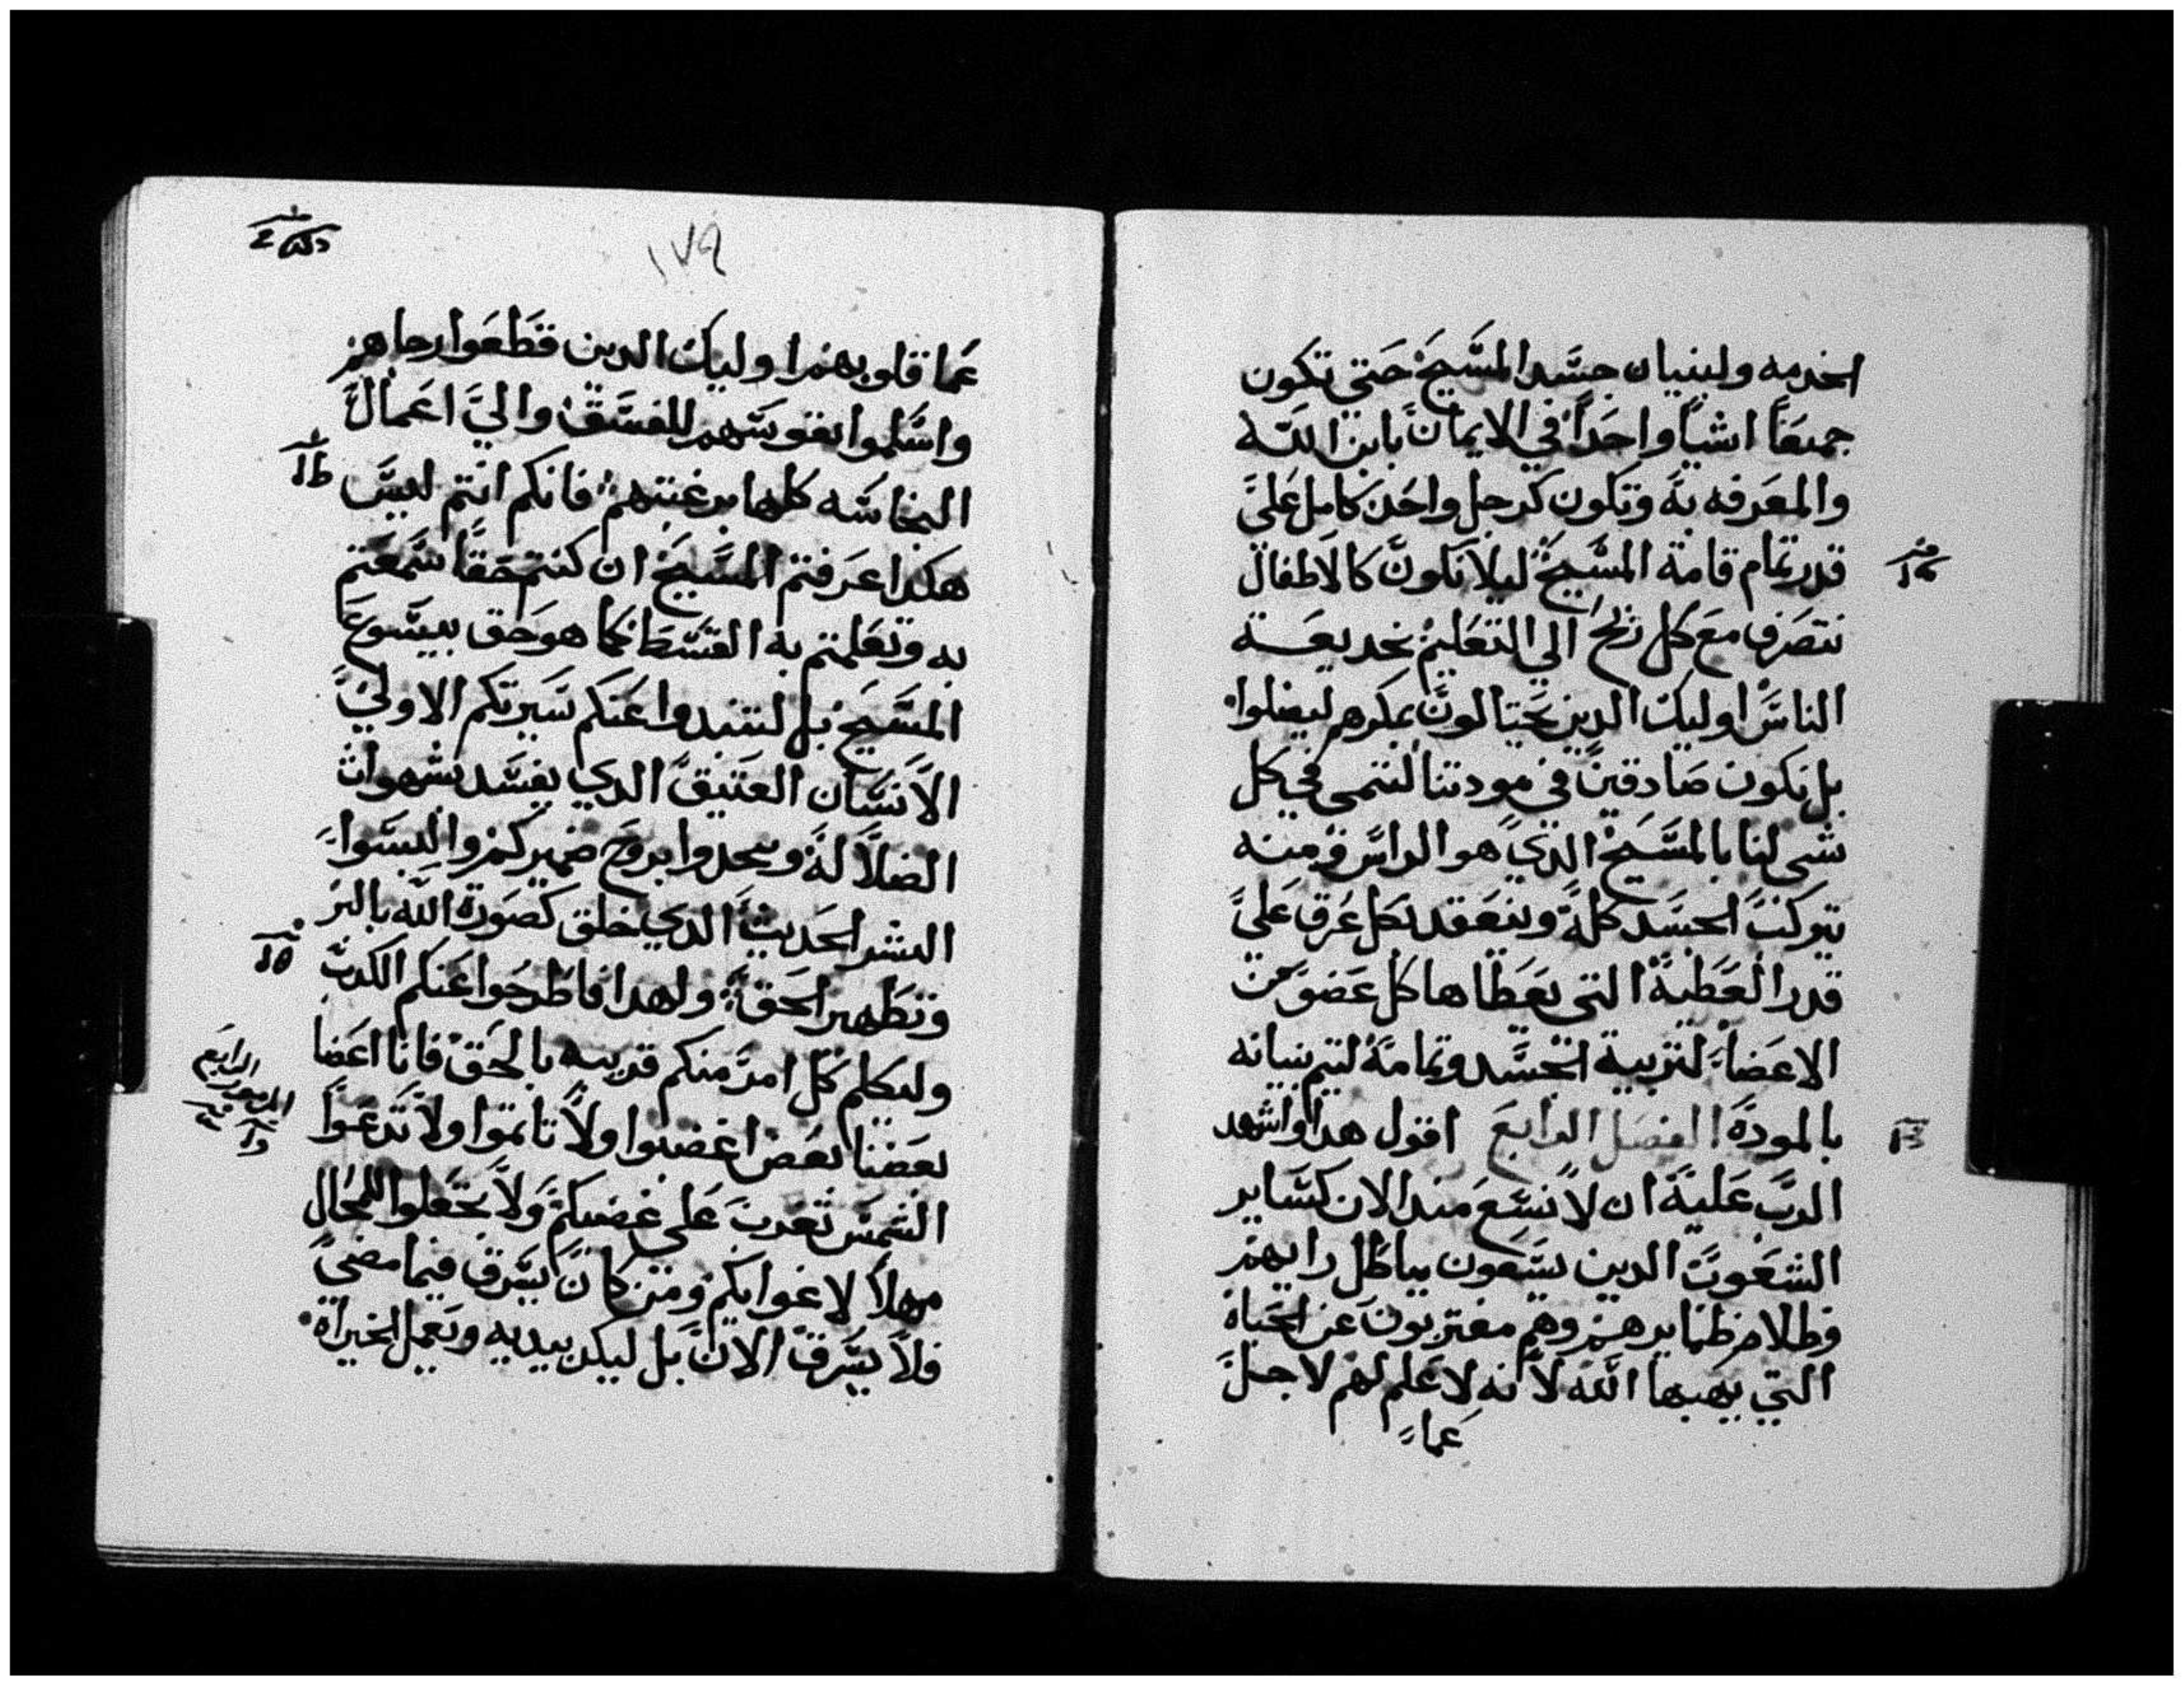 الخدمه ولبنيان جسَّد المسَّيحَ حَتي تكون
جميعَاً اشياً واحَداً في الايمان بابن اللَّه
والمعَرفه به وتكون كرجل واحَد كامل عَلي
قدر تمام قامة المسَّيحَ ليلا نكون كالاطفال
نتصَرف معَ كل ريحَ الي التعَليم بخديعَة
الناسَّ اوليك الدين يحَتالون بمكرهم ليضلوا
بل نكون صَادقين في مودتنا لننمى في كل
شي لنا بالمسَّيحَ الدي هو الراسَّ ومنه
يتركب الجسَّد كله وينعَقد بكل عَرق عَلي
قدر العَطية التي يعَطاها كل عَضو من
الاعَضاء لتربية الجسَّد وتمامه لتيم بنيانه
بالمودة الفصَل الرابعَ اقول هدا واشهد
الربَّ عَلية ان لا نسَّعَ مند الان كسَّاير
الشعَوبَّ الدين يسَّعَون بباطل رايهم
وظلام ظمايرهم وهم مغتربون عَن الحَياة
التي يهبها اللَّه لانه لا عَلم لهم لاجل
عَماء
١٧٩
عَما قلوبهم اوليك الدين قطعَوا رجاهم
واسَّلموا نفوسَّهم للفسَّق والي اعَمال
النجاسَّه كلها برغبتهم فانكم انتم ليسَّ
هكدا عَرفتم المسَّيحَ ان كنتم حَقاً سَّمعَتم
به وتعَلمتم به القسَّط كما هو حَق بيسَّوعَ
المسَّيحَ بل لتنبدوا عَنكم سَّيرتكم الاولي
الانسَّان العَتيق الدي يفسَّد بشهوات
الضلالة وتتجددوا بروحَ ضميركم والبسَّوا
البشر الحَديث الدي خلق كصَورة اللَّه بالبر
وتطهير الحَق ولهدا فاطرحَوا عَنكم الكدبَّ
وليكلم كل امرء منكم قريبه بالحَق فانا اعَضا
بعَضنا بعَض اغضبوا ولا تاتموا ولا تدعَوا
الشمسَّ تغرب عَلي غضبكم ولا تجعَلوا للمحال
مهلاً لاغوايكم ومن كان يسَّرق فيما مضي
فلا يسَّرق الان بل ليكد بيديه ويعَمل الخيراة